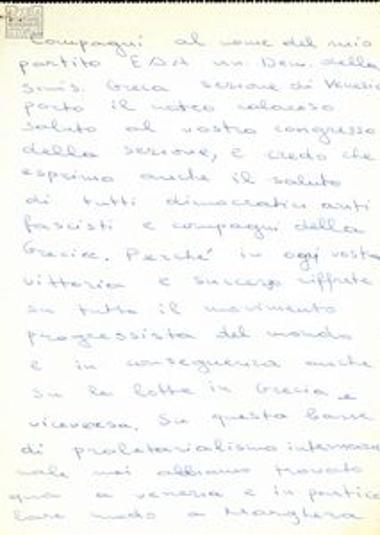 Compagni al nome del mio
partito EDA un. Dem. della
sinis. Greca sezione di Venezia
porto il nostro caloroso
saluto al vostro congresso
della sezione, e credo che
esprimo anche il saluto
di tutti dimocratici anti
fascisti e compagni della
Grecia. Perché in ogni vostra
vittoria e successo riffrete
su tutto il movimento
progressista del mondo
e in conseguenza anche
su le lotte in Grecia e
viceversa. Su questa base
di proletarialismo internazio
nale noi abbiamo trovato
qua a venezia e in partico
lare modo a Marghera